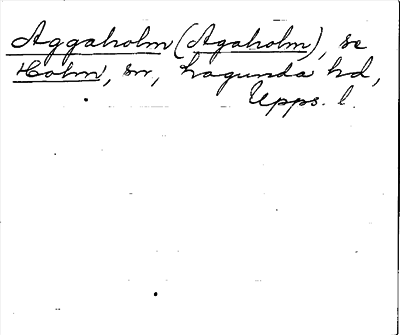 Aggaholm (Agaholm), se
Holm, sn, Lagunda hd,
Upps. l.